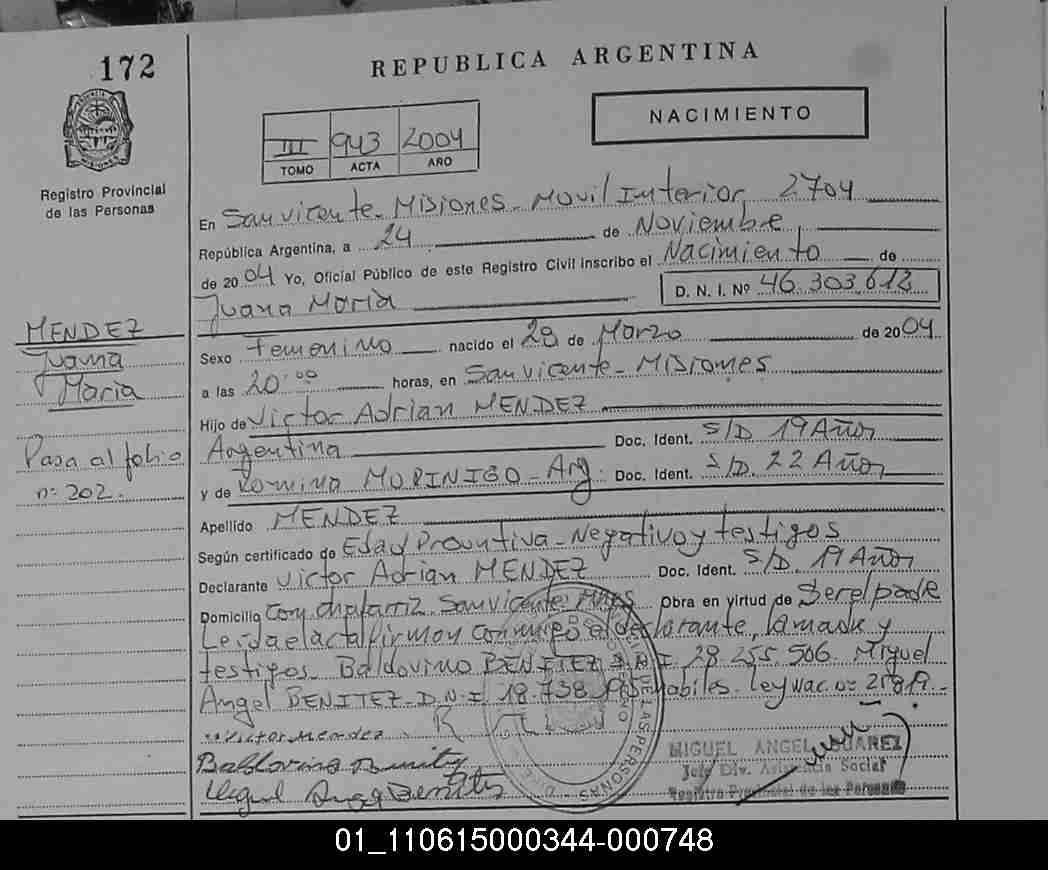 172
REPUBLICA ARGENTINA
NACIMIENTO
III 943 2004
TOMO ACTA AÑO
Registro Provincial
de las Personas
En San vicente - Misiones - Movil Interior, 2704
República Argentina, a 24 de Noviembre
de 2004 Yo, Oficial Público de este Registro Civil inscribo el Nacimiento de
Juana Maria D. N. I. Nº 46.303.612
MENDEZ
Juana
Maria
Sexo Femenino nacido el 28 de Marzo de 2004
a las 20:00 horas, en San vicente - Misiones
Hijo de Victor Adrian MENDEZ
Argentina Doc. Ident. S/D 19 Años
Pasa al folio
nº 202.
y de Romina MORINIGO - Arg. Doc. Ident. S/D. 22 Años
Apellido MENDEZ
Según certificado de Edad Presuntiva - Negativo y testigos
Declarante Victor Adrian MENDEZ Doc. Ident. S/D. 19 Años
Domicilio San vicente Mnes Obra en virtud de Ser el padre
Leida el acta firman conmigo el declarante, la madre y
testigos Baldovino BENITEZ D.N.I 28.255.506 Miguel
Angel BENITEZ - D.N.I 18.738. Ley Nac. nº
Victor Mendez
Baldovino Benitez
Miguel Angel Benitez
MIGUEL ANGEL SUAREZ
Jefe Div. Asistencia Social
Registro Provincial de las Personas
01_110615000344-000748